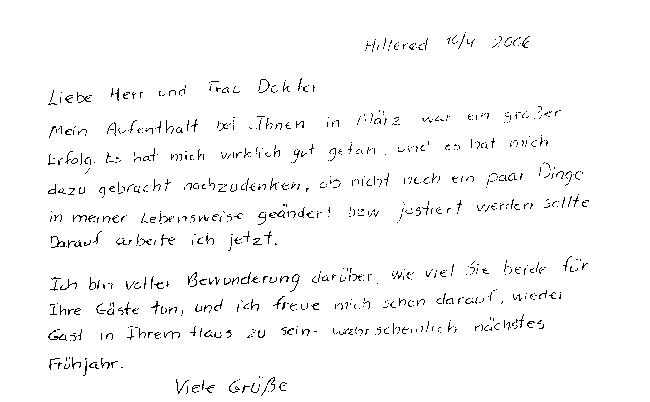 Hillerød 16/4 2006
Liebe Herr und Frau Dokter
Mein Aufenthalt bei Ihnen in März war ein großer
Erfolg. Es hat mich wirklich gut getan, und es hat mich
dazu gebracht nachzudenken, ob nicht noch ein paar Dinge
in meiner Lebensweise geändert bzw justiert werden sollte
Darauf arbeite ich jetzt.
Ich bin voller Bewunderung darüber, wie viel Sie beide für
Ihre Gäste tun, und ich freue mich schon darauf, wieder
Gast in Ihrem Haus zu sein - wahrscheinlich nächstes
Frühjahr.
Viele Grüße